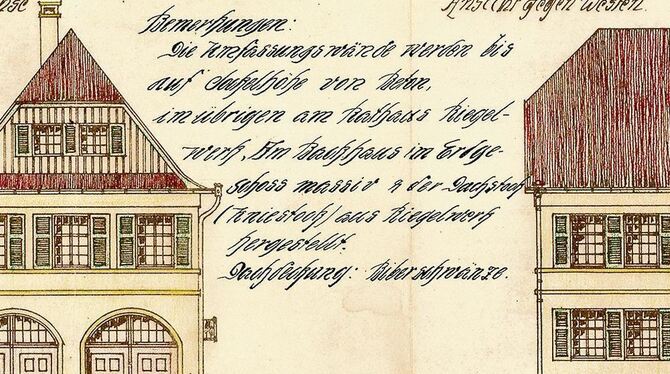 Ansicht gegen Westen.
Bemerkungen:
Die Umfassungswände werden bis
auf Sockelhöhe von Beton,
im übrigen am Rathaus Riegel-
werk, Am Backhaus im Erdge-
schoss massiv & der Dachstock
(Kniestock) aus Riegelwerk
hergestellt.
Dachdeckung: Biberschwänze.